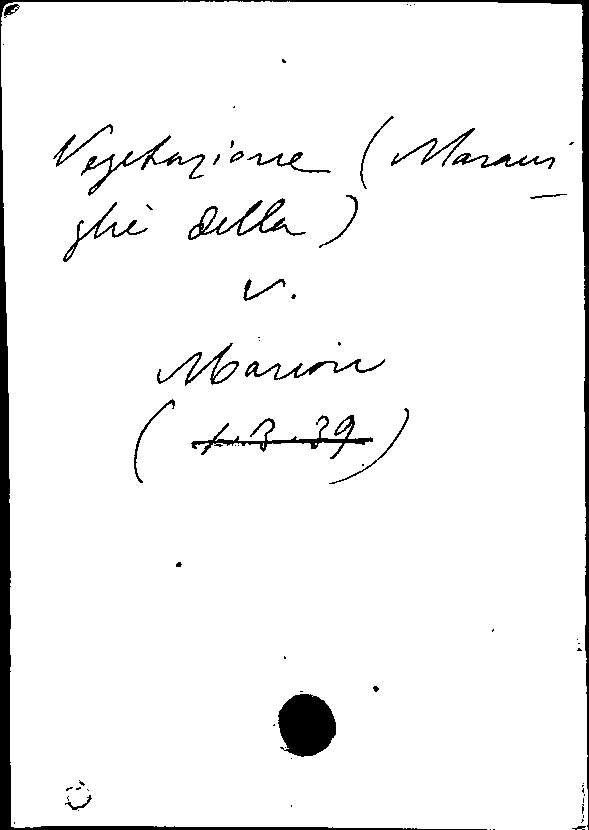 Vegetazione (Maravi
glie della)
v.
Marion
(1.3.39)